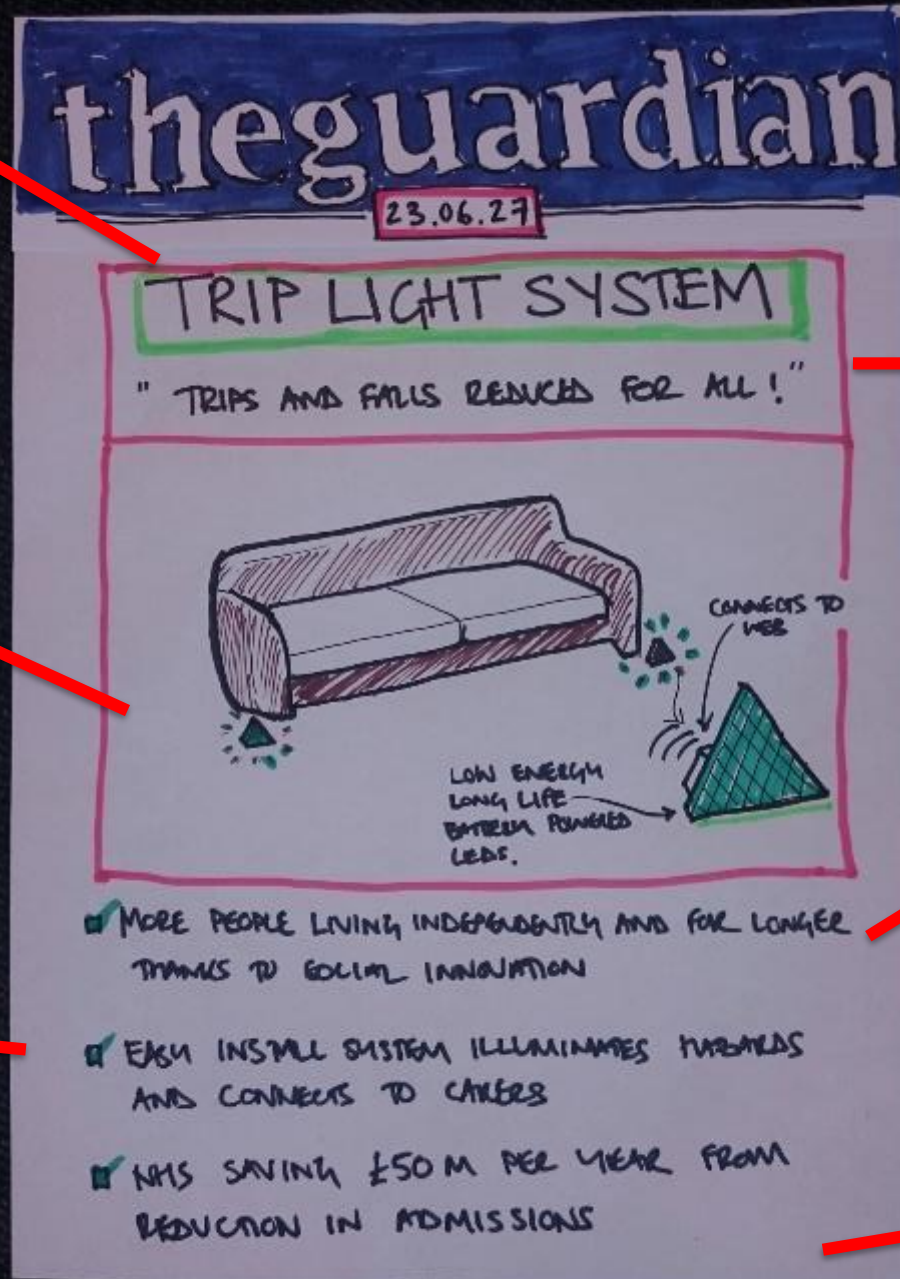 theguardian
23.06.27
TRIP LIGHT SYSTEM
" TRIPS AND FALLS REDUCED FOR ALL ! "
CONNECTS TO
WEB
LOW ENERGY
LONG LIFE
BATTERY POWERED
LEDS.
MORE PEOPLE LIVING INDEPENDENTLY AND FOR LONGER
THANKS TO SOCIAL INNOVATION
EASY INSTALL SYSTEM ILLUMINATES HAZARDS
AND CONNECTS TO CARERS
NHS SAVING £50M PER YEAR FROM
REDUCTION IN ADMISSIONS